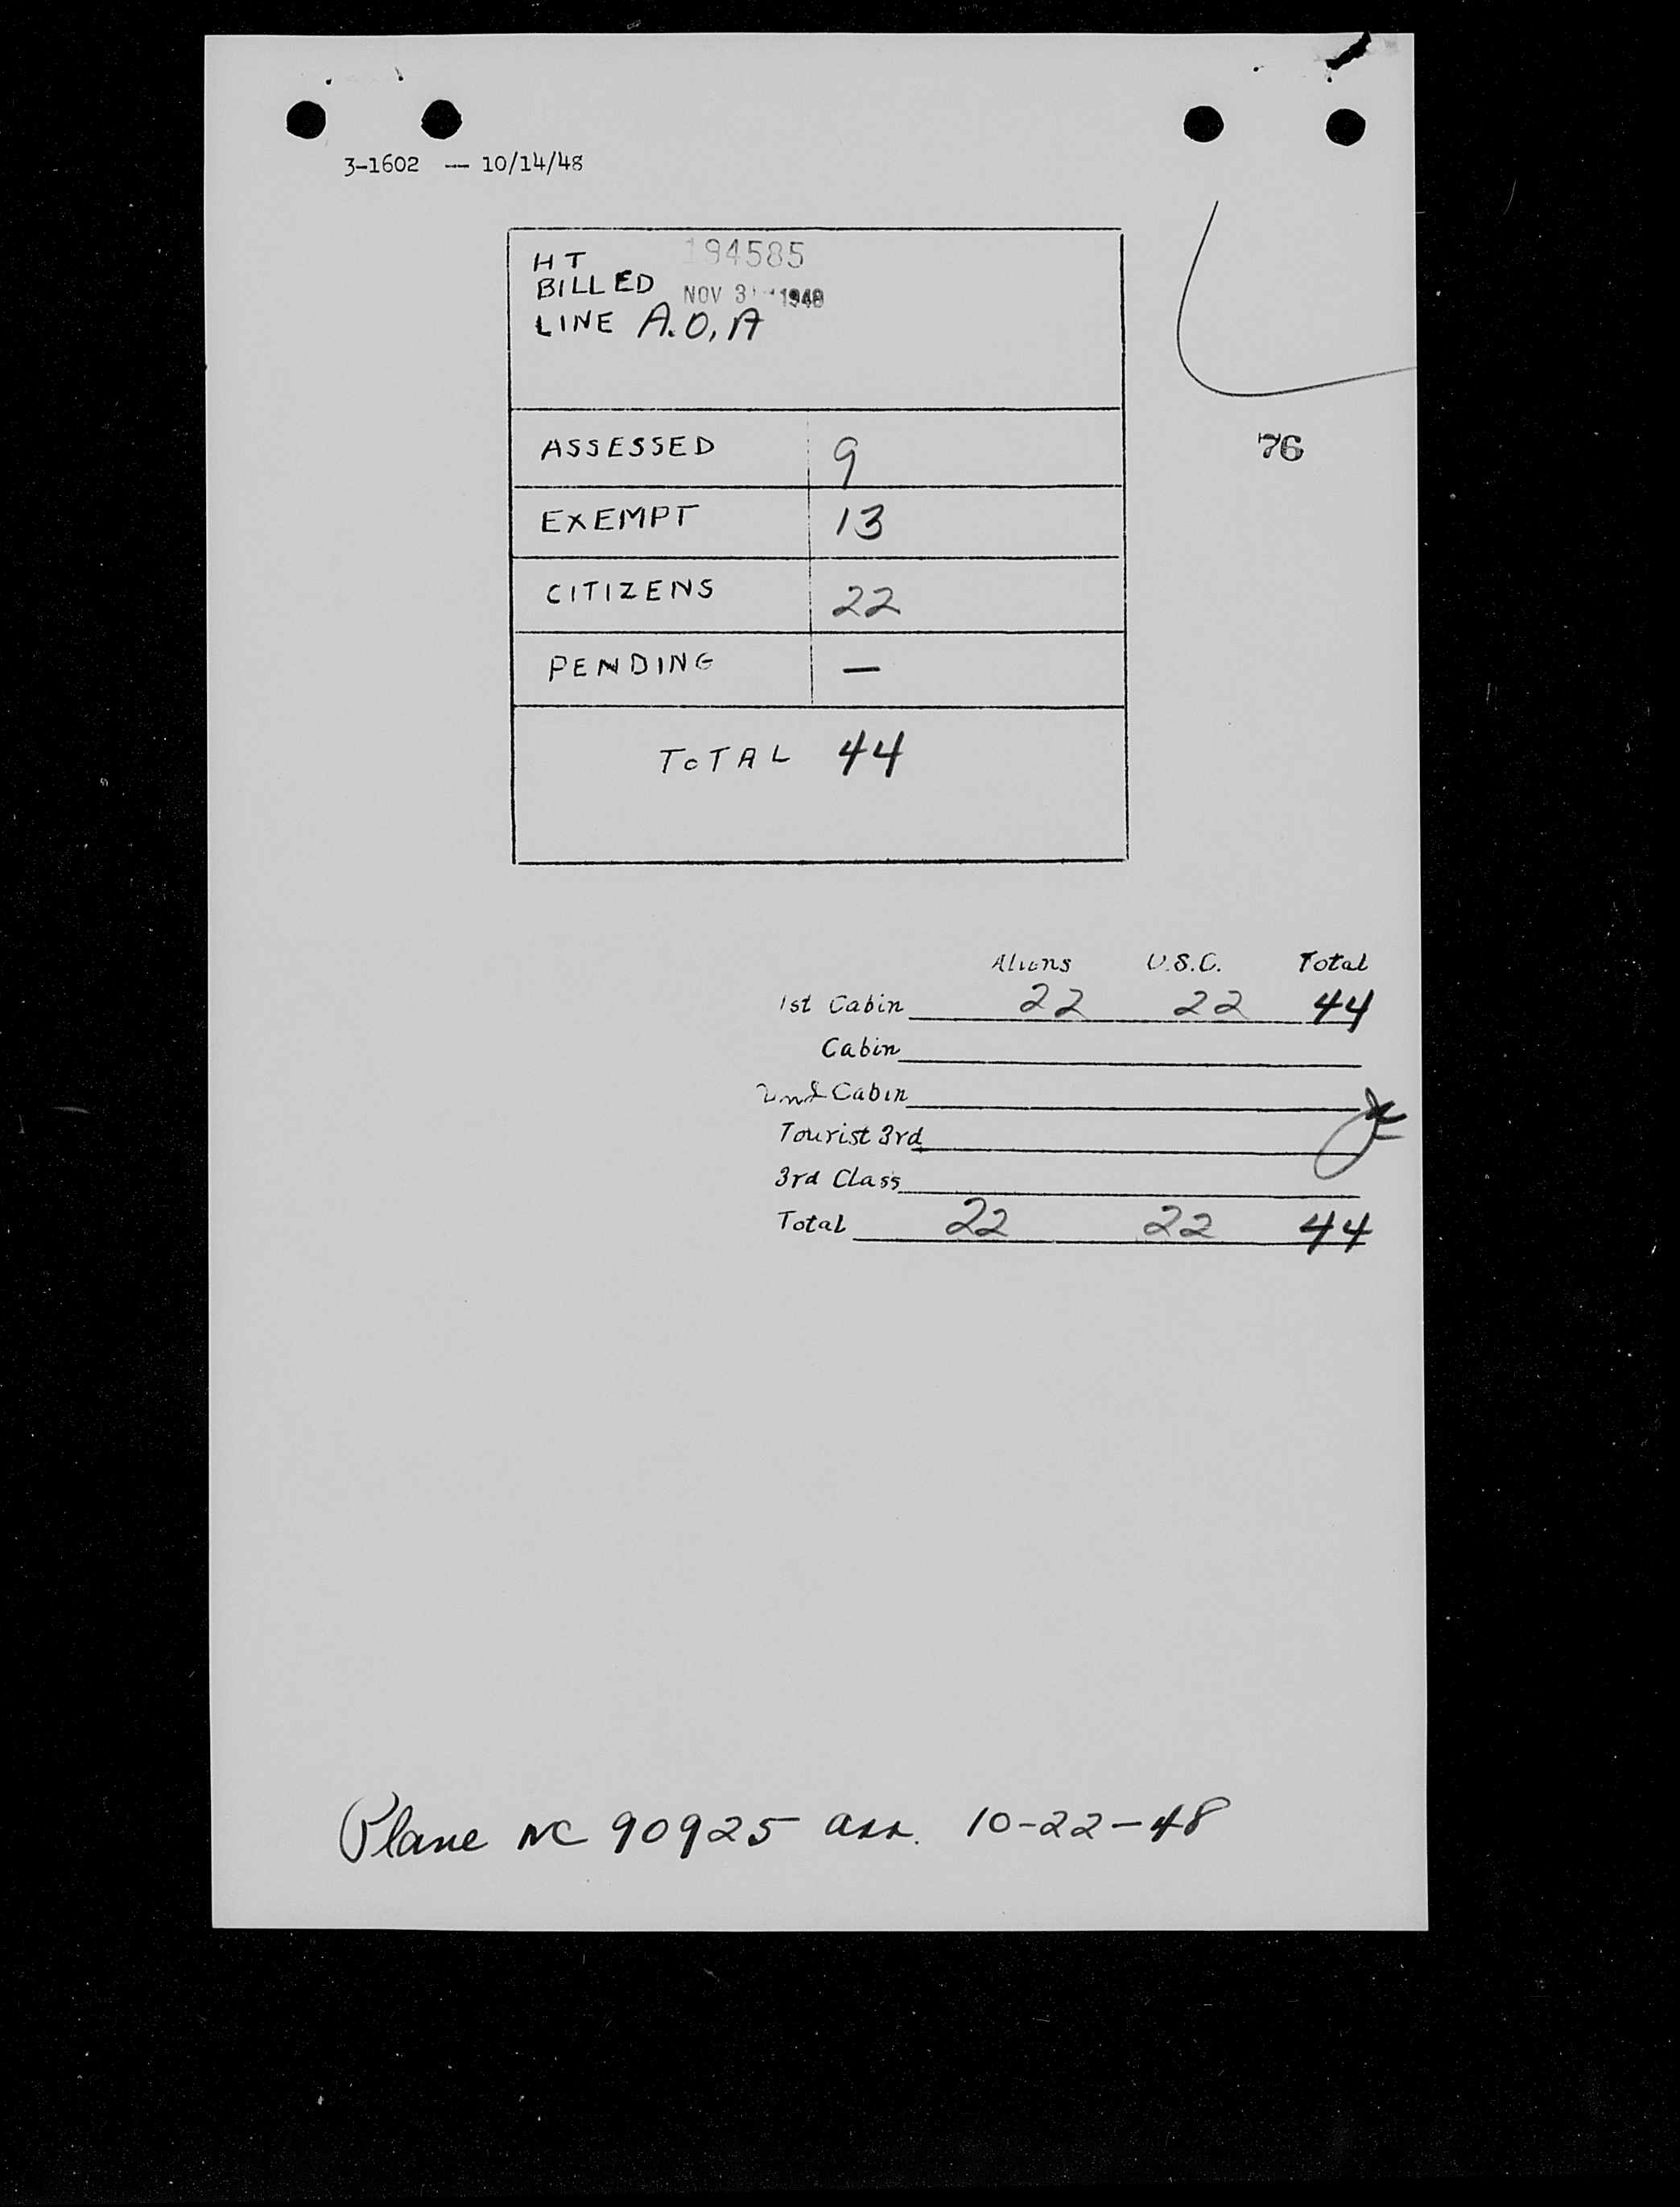 3-1602 — 10/14/48
HT 194585
BILLED NOV 3 1948
LINE A.O.A
76
ASSESSED 9
EXEMPT 13
CITIZENS 22
PENDING —
TOTAL 44
Aliens U.S.C. Total
1st Cabin 22 22 44
Cabin
2nd Cabin
Tourist 3rd
3rd Class
Total 22 22 44
Plane NC 90925 arr. 10-22-48